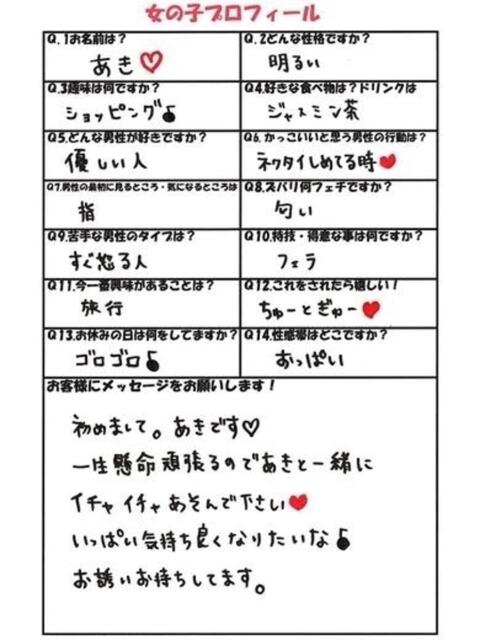 女の子プロフィール
Q.1お名前は?
あき♡
Q.2どんな性格ですか?
明るい
Q.3趣味は何ですか?
ショッピング♪
Q4.好きな食べ物は?ドリンクは
ジャスミン茶
Q5.どんな男性が好きですか?
優しい人
Q6.かっこいいと思う男性の行動は?
ネクタイしめてる時♥
Q7.男性の最初に見るところ・気になるところは
指
Q8.ズバリ何フェチですか?
匂い
Q9.苦手な男性のタイプは?
すぐ怒る人
Q10.特技・得意な事は何ですか?
フェラ
Q11.今一番興味があることは?
旅行
Q12.これをされたら嬉しい!
ちゅーとぎゅー♥
Q13.お休みの日は何をしてますか?
ゴロゴロ♪
Q14.性感帯はどこですか?
おっぱい
お客様にメッセージをお願いします!
初めまして。あきです♡
一生懸命頑張るのであきと一緒に
イチャイチャあそんで下さい♥
いっぱい気持ち良くなりたいな♪
お誘いお待ちしてます。